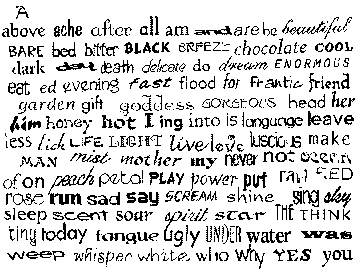 A
above ache after all am and are be beautiful
BARE bed bitter BLACK BREEZE chocolate COOL
dark day death delicate do dream ENORMOUS
eat ed evening fast flood for frantic friend
garden gift goddess GORGEOUS head her
him honey hot I ing into is language leave
less lick LIFE LIGHT live love luscious make
MAN mist mother my never not ocean
of on peach petal PLAY power put rain RED
rose run sad say SCREAM shine sing sky
sleep scent sour spirit star THE THINK
tiny today tongue ugly UNDER water was
weep whisper white who Why YES you